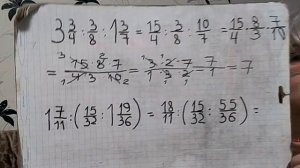 3 3/4 : 3/8 : 1 3/7 = 15/4 : 3/8 : 10/7 = 15/4 · 8/3 · 7/10
= 15·8·7/4·3·10 = 3·2·7/1·3·2 = 7/1 = 7
1 7/11 : (15/32 : 1 19/36) = 18/11 : (15/32 : 55/36) =